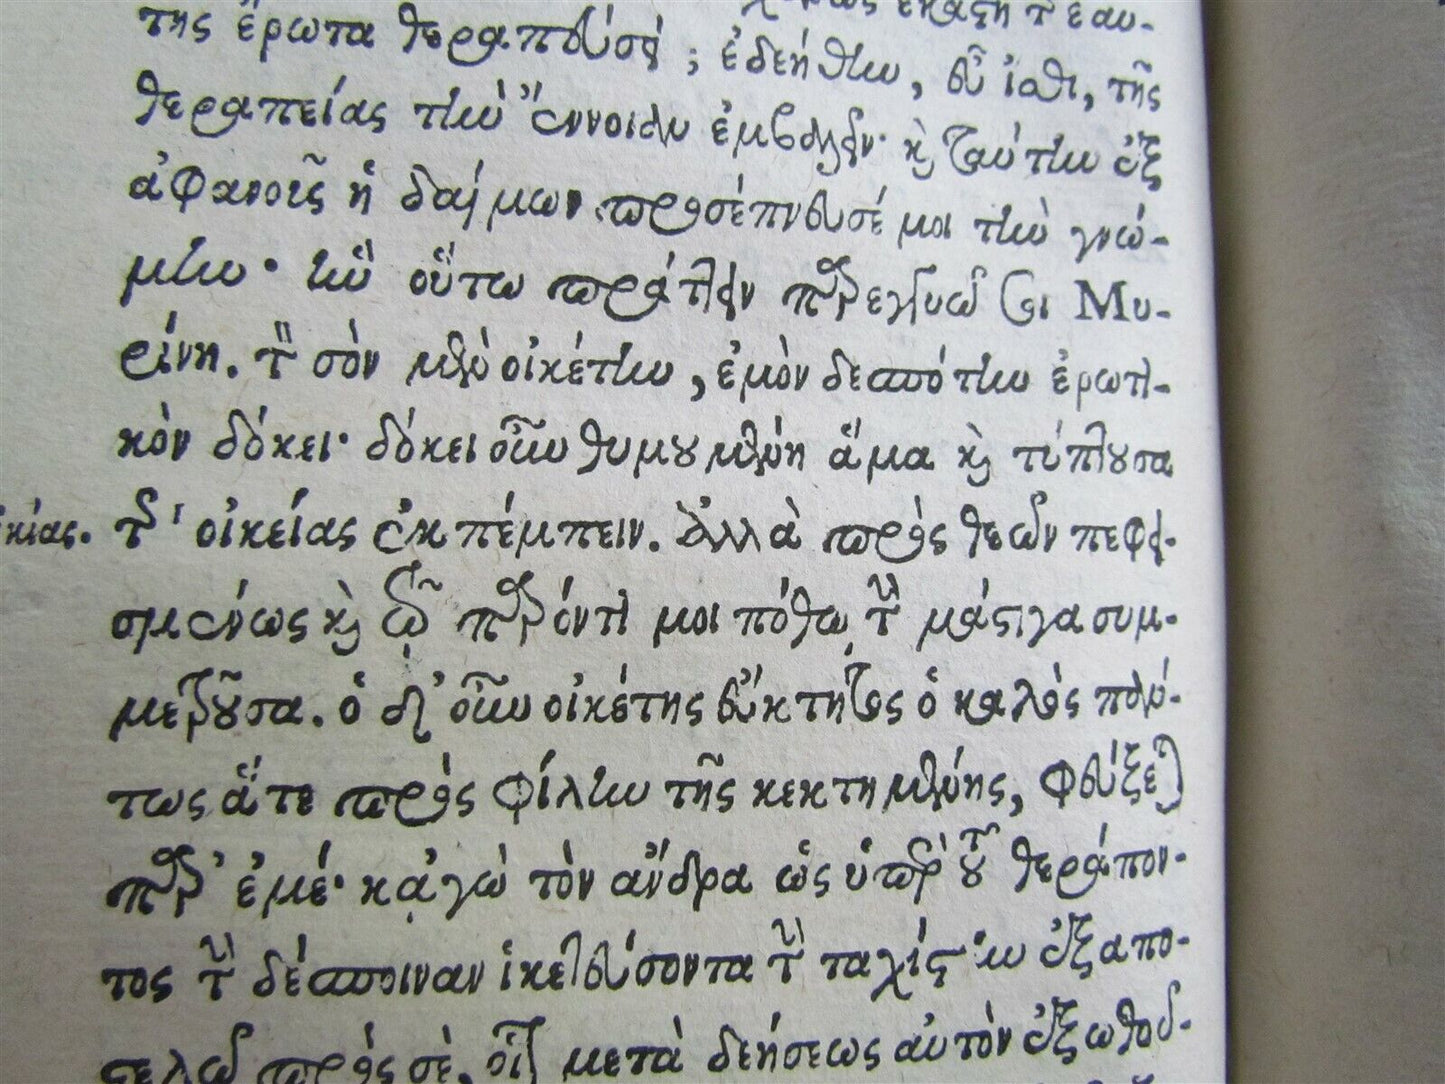 ἑκάστη τῶν ἑαυ-
της ἔρωτα θεραπεύσῃ; ἐδεήθην, εὖ ἴσθι, τῆς
θεραπείας τὴν ἔννοιαν ἐμβαλεῖν· καὶ ταύτην ἐξ
ἀφανοῦς ἡ δαίμων προσέπνευσέ μοι τὴν γνώ-
μην· ἣν οὕτω πράττειν παρεγγυῶ σοι Μυ-
ρίνη. τὸν σὸν μὲν οἰκέτην, ἐμὸν δεσπότην ἐρωτι-
κὸν δόκει· δόκει οὖν θυμουμένη ἅμα καὶ τύπτουσα
κίας. τῆς οἰκείας ἐκπέμπειν. ἀλλὰ πρὸς θεῶν πεφει-
σμένως καὶ τῷ παρόντι μοι πόθῳ τὴν μάστιγα συμ-
μετροῦσα. ὁ δ' οὖν οἰκέτης εὔκτητος ὁ καλὸς πάν-
τως ἅτε πρὸς φίλην τῆς κεκτημένης, φεύξεται
παρ' ἐμέ· κἀγὼ τὸν ἄνδρα ὡς ὑπὲρ τοῦ θεράπον-
τος τὴν δέσποιναν ἱκετεύσοντα τὴν ταχίστην ἐξαπο-
στελῶ πρὸς σὲ, μετὰ δεήσεως αὐτὸν ἐξωθοῦ-